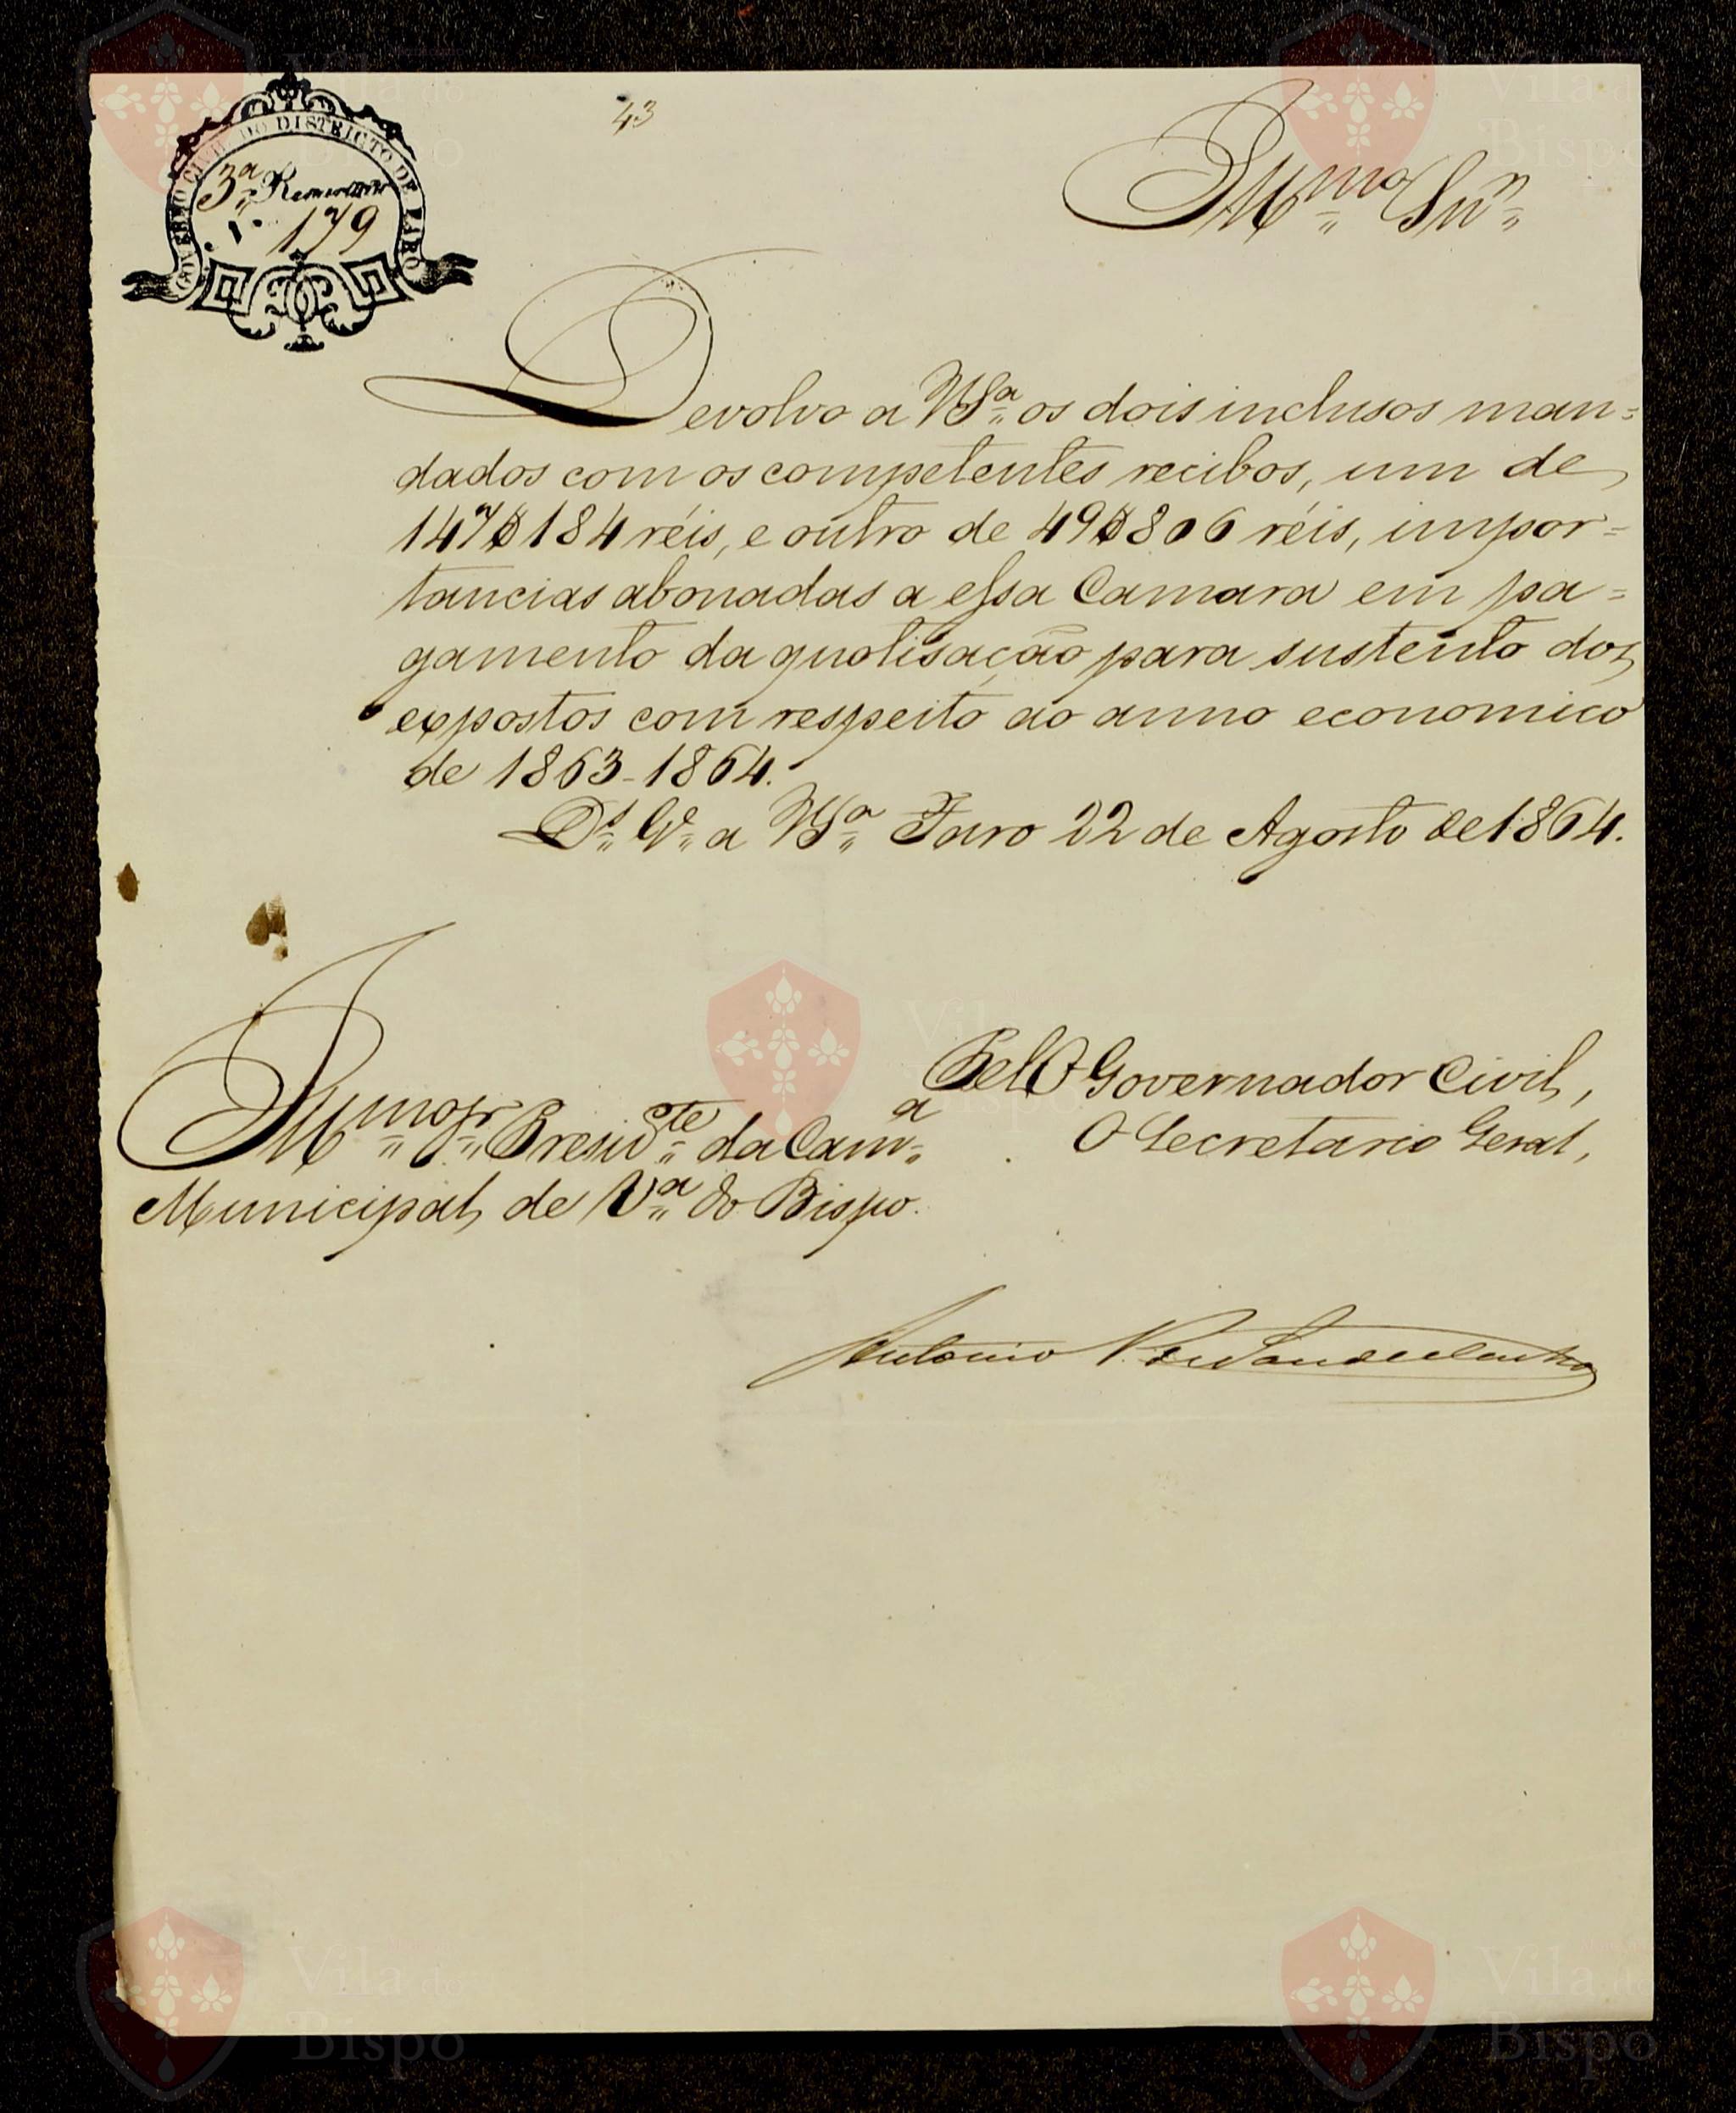 43
GOVERNO CIVIL DO DISTRICTO DE FARO
3ª Repartição
N.º 179
Illmo Snr
Devolvo a VSª os dois inclusos man=
dados com os competentes recibos, um de
147$184 réis, e outro de 49$806 réis, impor=
tancias abonadas a essa Camara em pa=
gamento da quotisação para sustento dos
expostos com respeito ao anno economico
de 1863-1864.
Ds Ge a VSª Faro 22 de Agosto de 1864.
Pelo Governador Civil,
O Secretario Geral,
Illmo Sr Presidte da Camª
Municipal de Vª do Bispo.
Antonio
Vila do Bispo